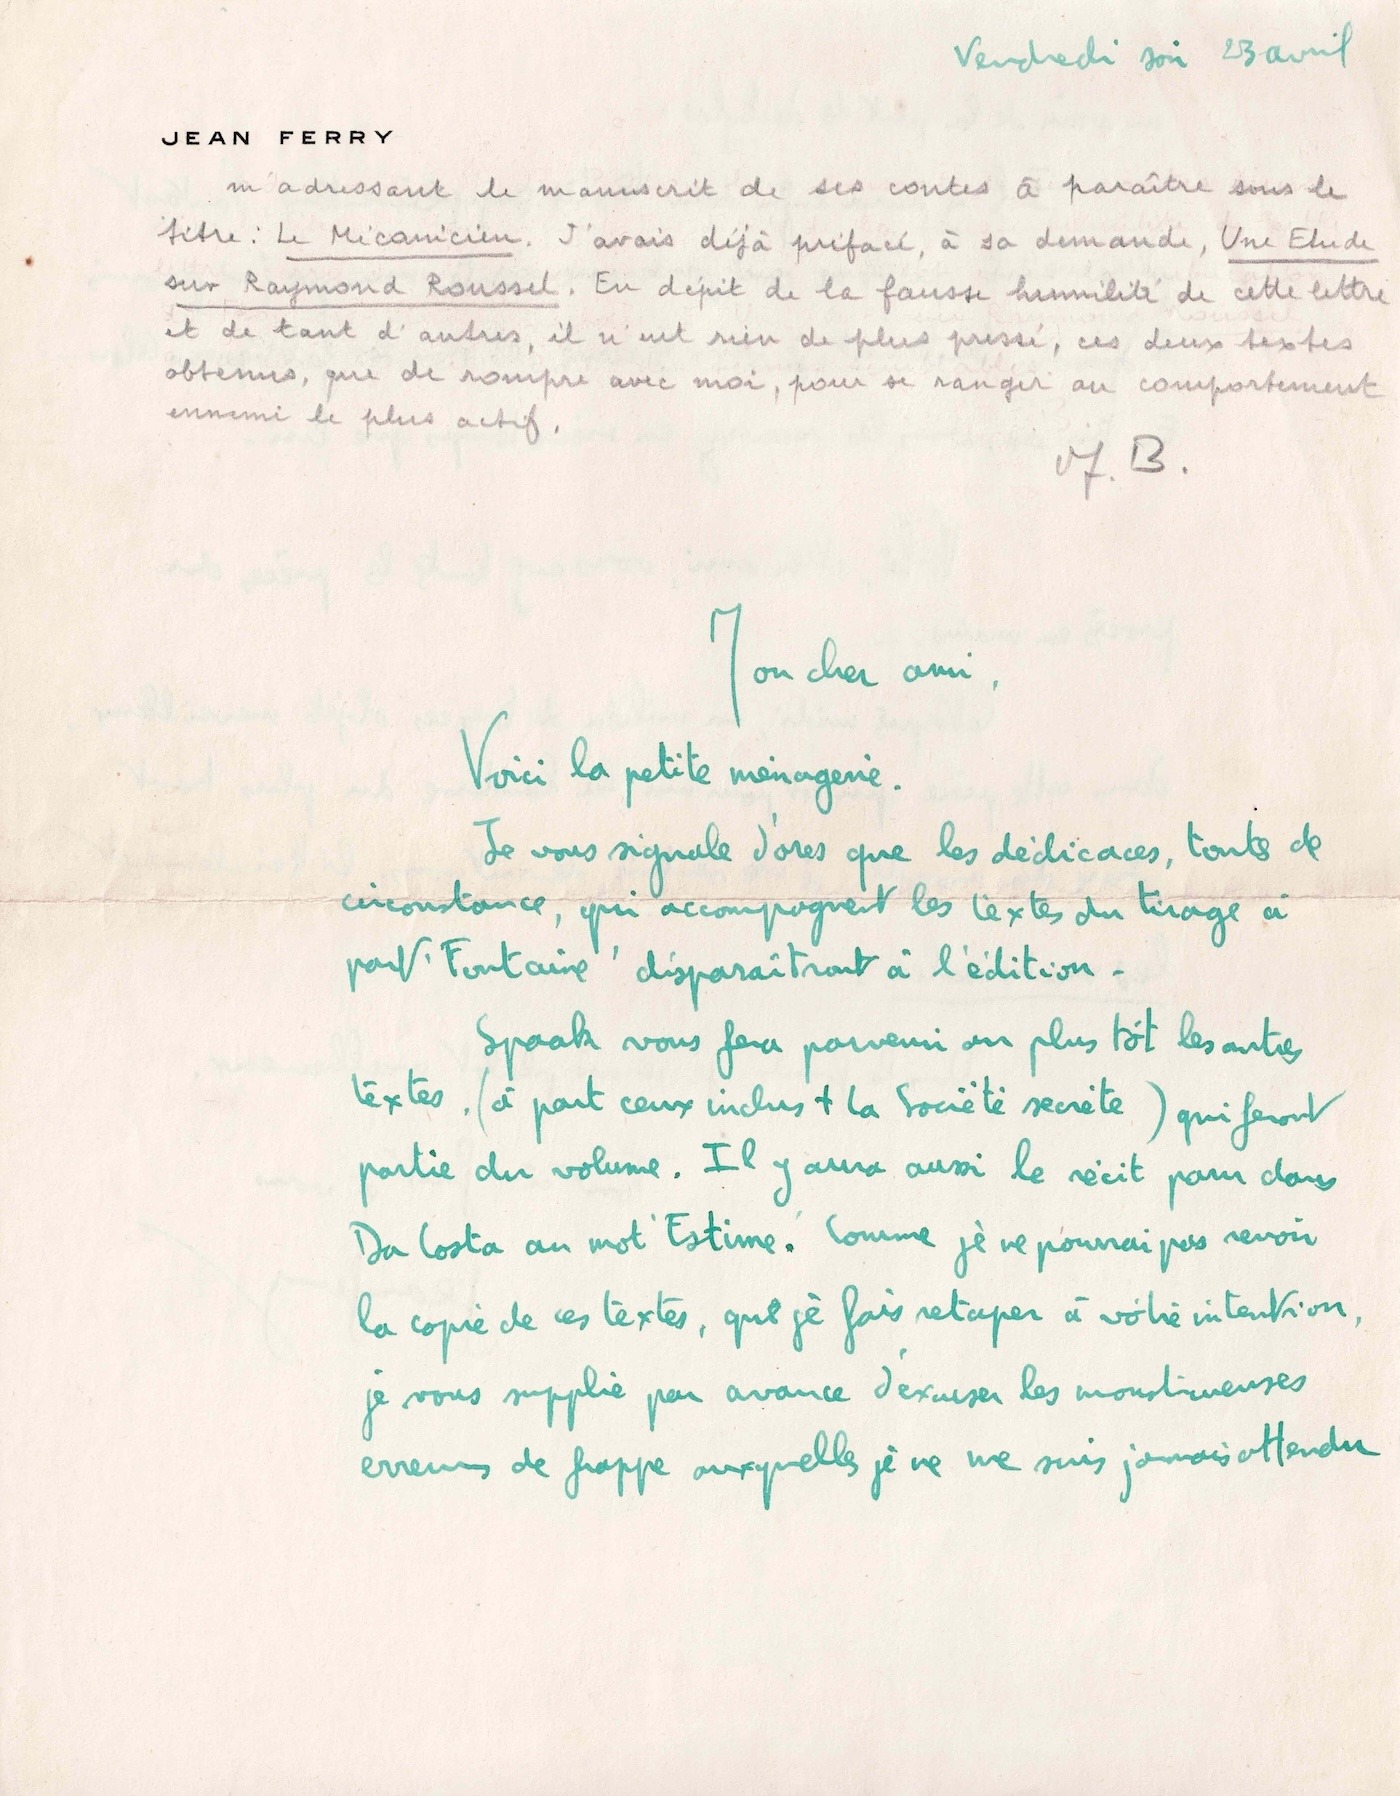 Vendredi soir 23 avril
JEAN FERRY
m'adressant le manuscrit de ses contes à paraître sous le
titre : Le Mécanicien. J'avais déjà préfacé, à sa demande, Une Etude
sur Raymond Roussel. En dépit de la fausse humilité de cette lettre
et de tant d'autres, il n'eut rien de plus pressé, ces deux textes
obtenus, que de rompre avec moi, pour se ranger au comportement
ennemi le plus actif.
A. B.
Mon cher ami,
Voici la petite ménagerie.
Je vous signale d'ores que les dédicaces, toutes de
circonstance, qui accompagnent les textes du tirage à
part 'Fontaine' disparaîtront à l'édition -
Spaak vous fera parvenir au plus tôt les autres
textes. (à part ceux inclus + la Société secrète) qui feront
partie du volume. Il y aura aussi le récit paru dans
Da Costa au mot 'Estime.' Comme je ne pourrai pas revoir
la copie de ces textes, que je fais retaper à votre intention,
je vous supplie par avance d'excuser les monstrueuses
erreurs de frappe auxquelles je ne me suis jamais attendu